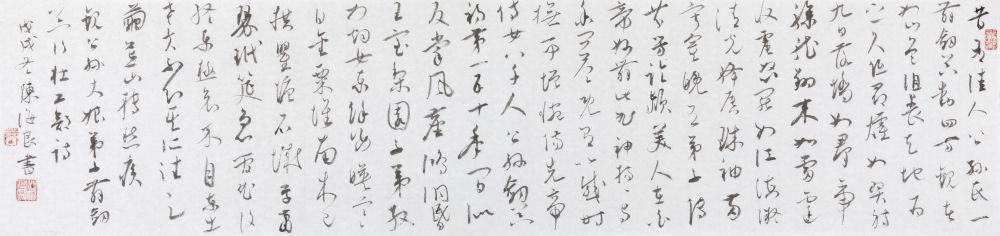 昔有佳人公孫氏一
舞劍器動四方觀者
如山色沮喪天地爲
之久低昂㸌如羿射
九日落矯如群帝
驂龍翔來如雷霆
收震怒罷如江海凝
清光絳唇珠袖兩
寂寞晚有弟子傳
芬芳臨潁美人在白
帝妙舞此曲神揚揚與
余問答既有以感時
撫事增惋傷先帝
侍女八千人公孫劍器
初第一五十年間似
反掌風塵澒洞昏
王室梨園子弟散
如煙女樂餘姿映寒
日金粟堆南木已
拱瞿塘石城草蕭
瑟玳筵急管曲復
終樂極哀來月東出
老夫不知其所往足
繭荒山轉愁疾
觀公孫大娘弟子舞劍
器行杜工部詩
戊戌冬陳海良書